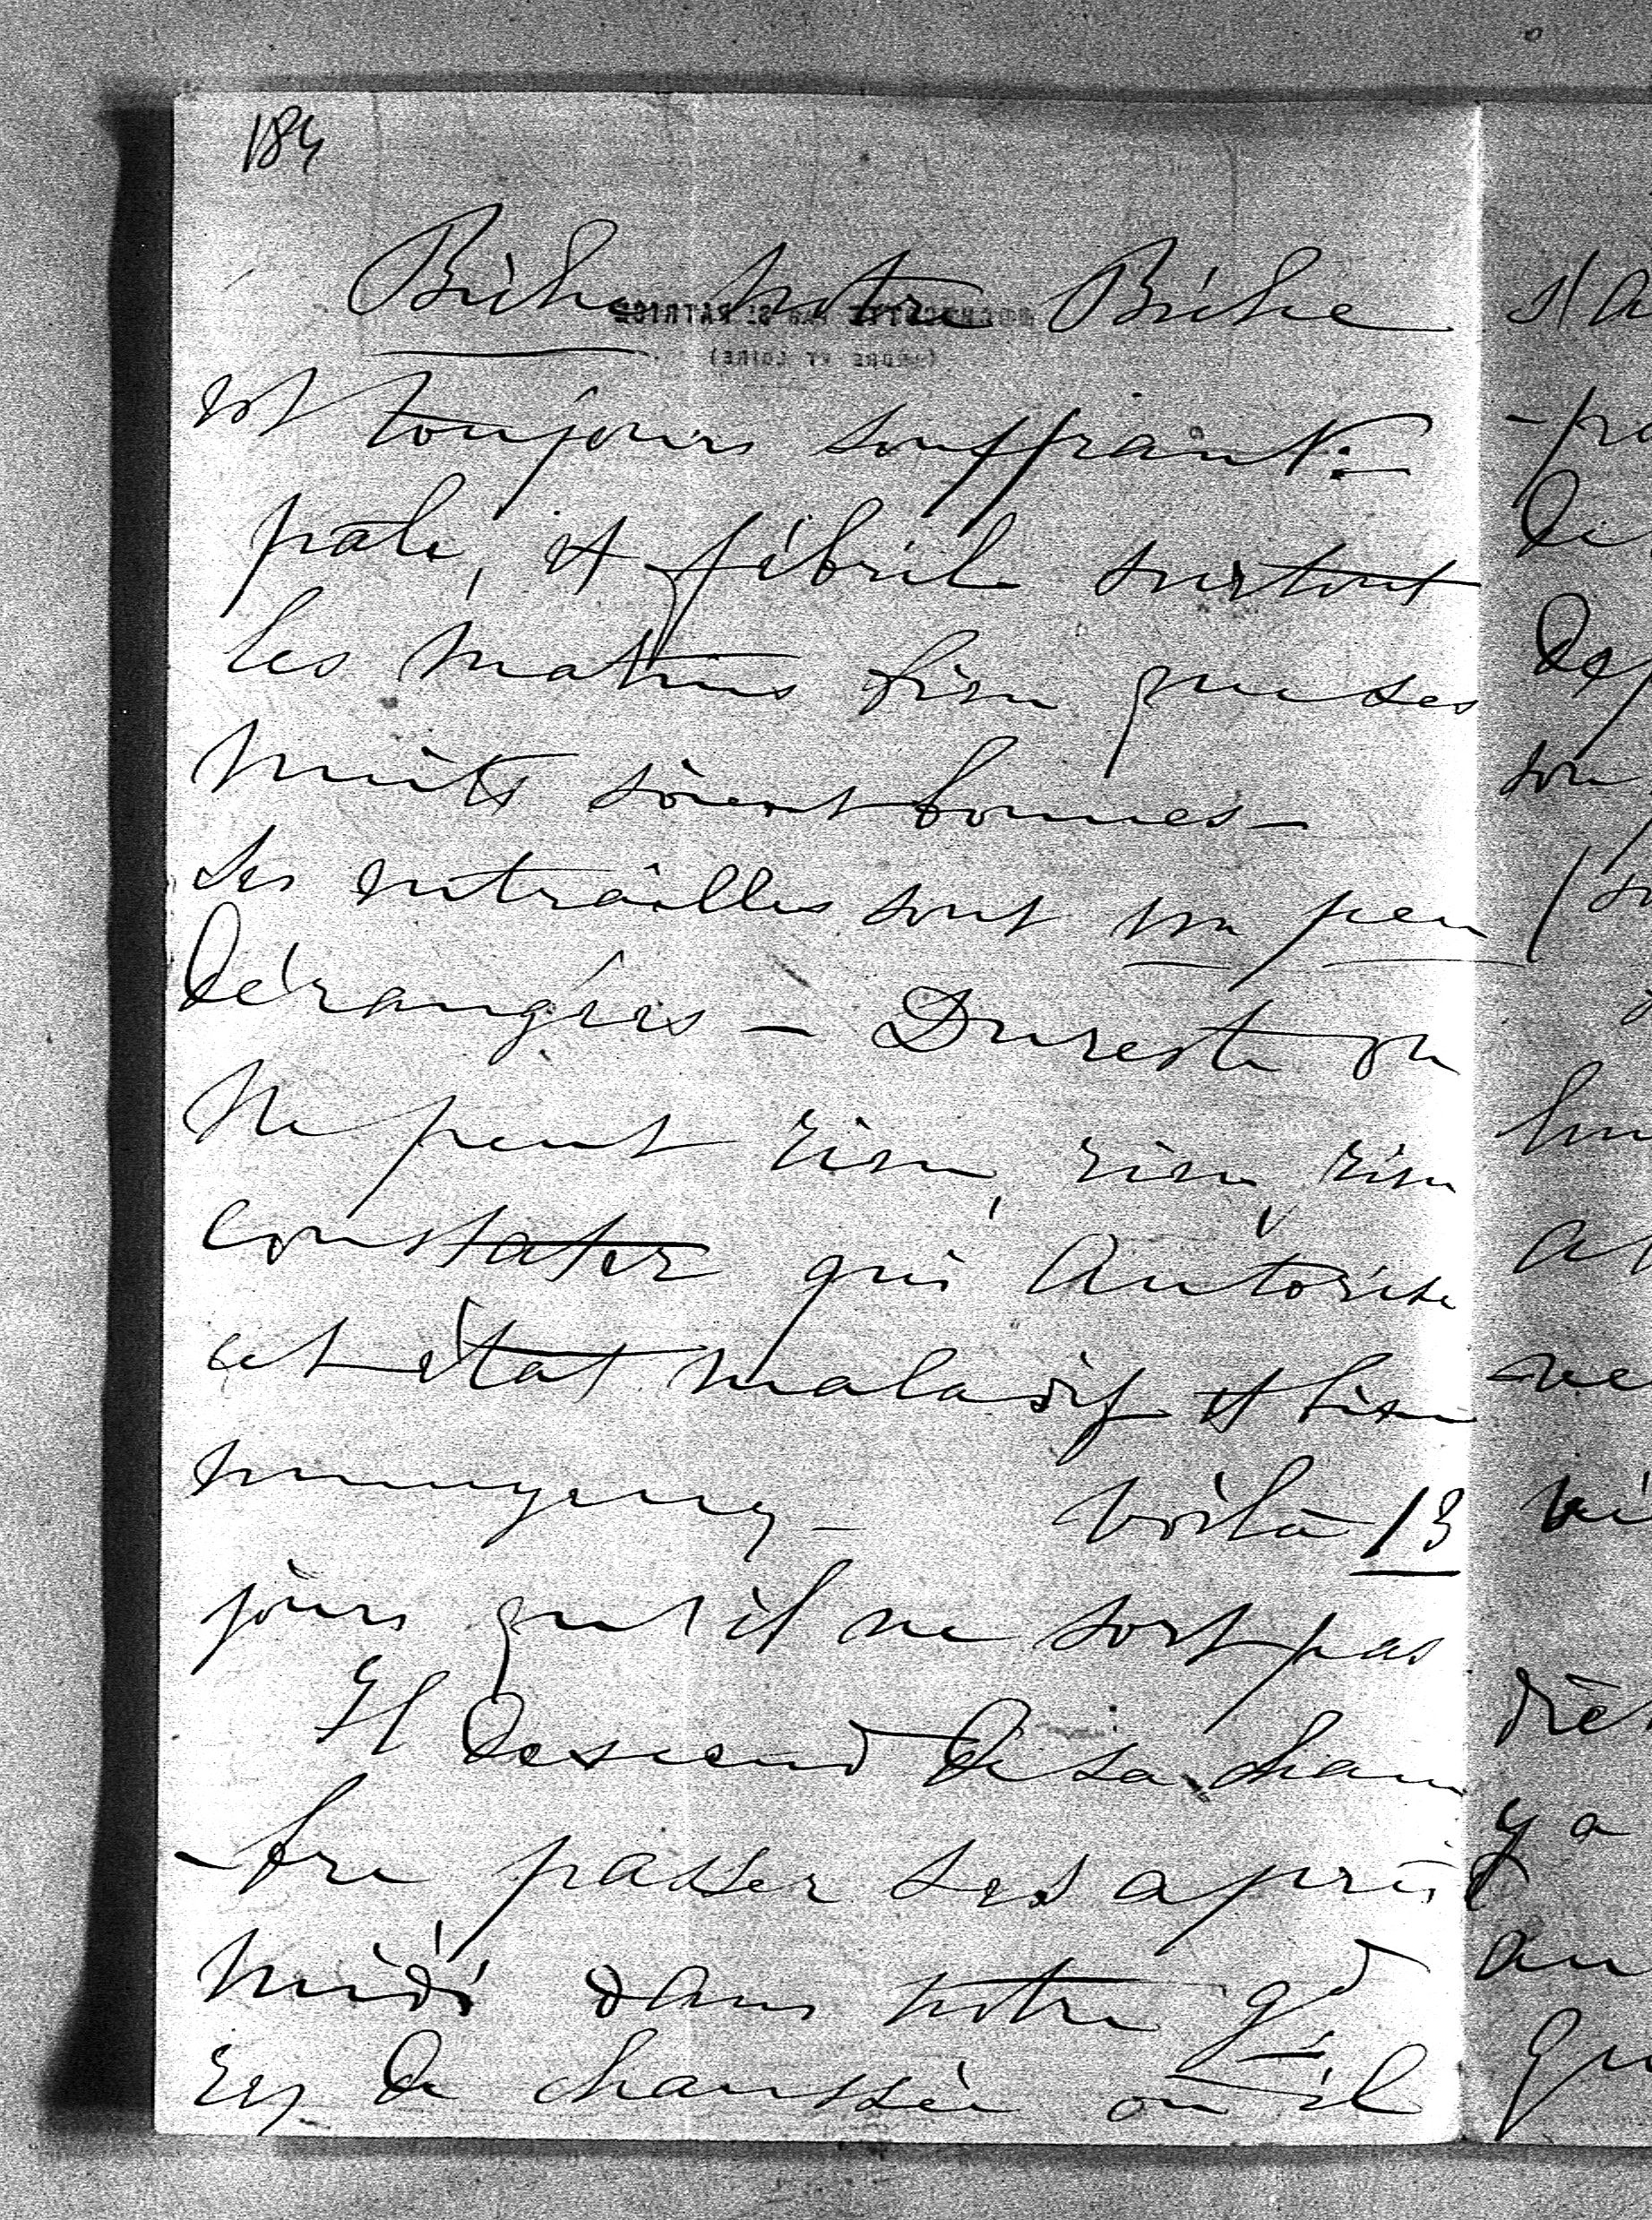 184
Biche notre Biche
est toujours souffrant :
pâle, et fébrile surtout
les matins bien que ses
nuits soient bonnes -
Ses entrailles sont un peu
dérangées - Du reste on
ne peut rien, rien, rien
constater qui autorise
cet état maladif et bien
ennuyeux - Voilà 13
jours qu'il ne sort pas.
Il descend de sa cham
-bre passer ses après
midi dans notre gd
rez de chaussée où il